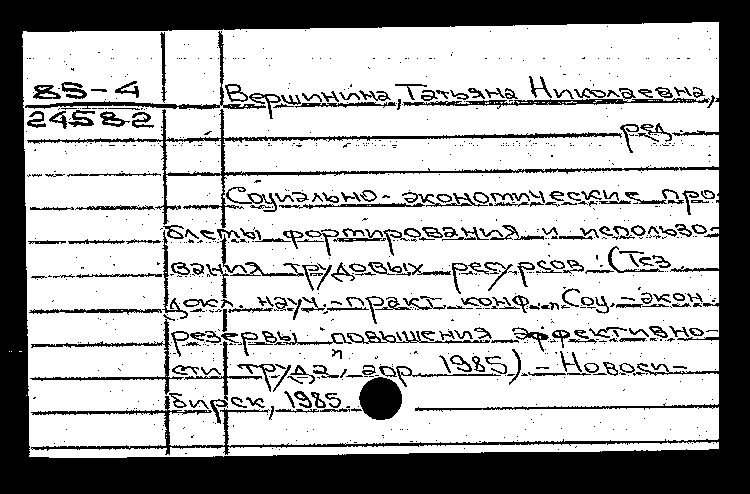 85-4
24582
Вершинина, Татьяна Николаевна,
ред.
Социально-экономические про-
блемы формирования и использо-
вания трудовых ресурсов: (Тез.
докл. науч.-практ. конф. "Соц.-экон.
резервы повышения эффективно-
сти труда", апр. 1985) - Новоси-
бирск, 1985